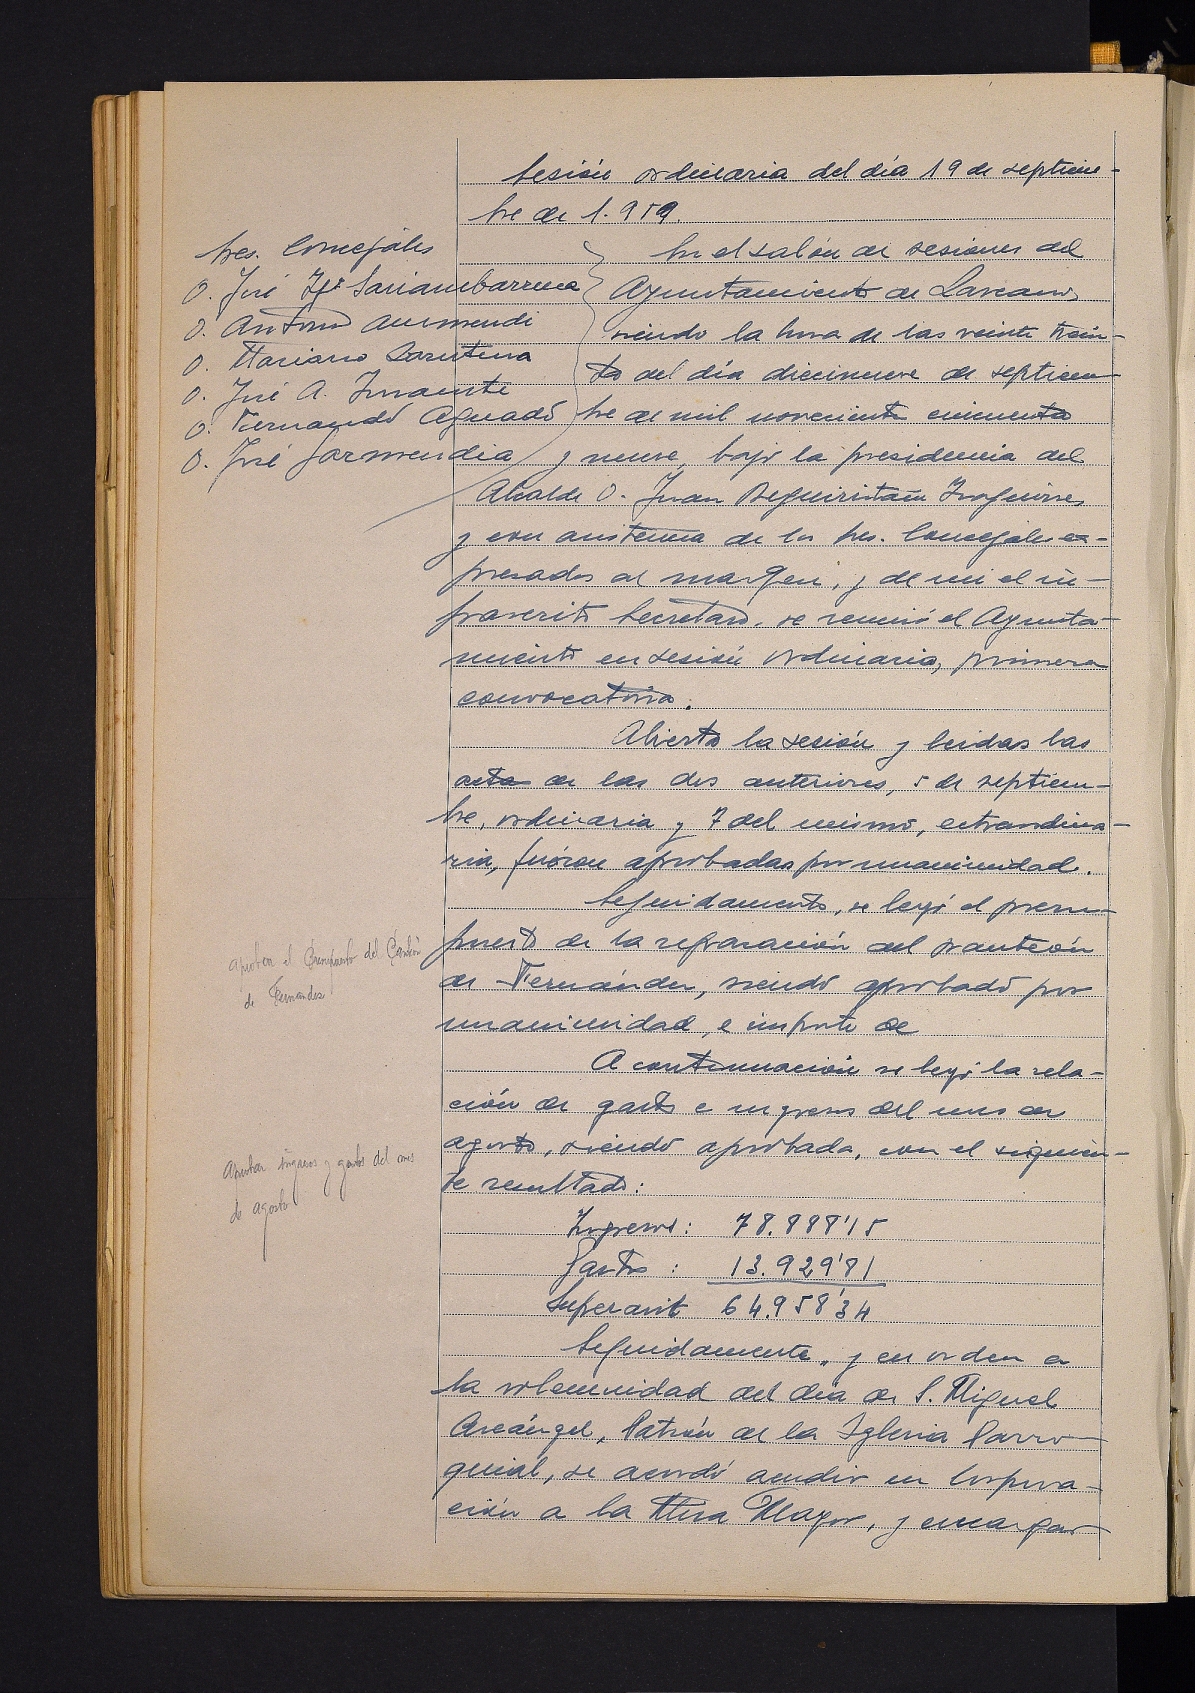 Sesión ordinaria del día 19 de septiem-
bre de 1.959.
Sres. Concejales
D. José Igº Sariambarrena
D. Antonio Aurmendi
D. Mariano
D. José A.
D. Fernando Aguado
D. José Garmendia
En el salón de sesiones del
Ayuntamiento de Lazcano,
siendo la hora de las veinte trein-
ta del día diecinueve de septiem-
bre de mil novecientos cincuenta
y nueve, bajo la presidencia del
Alcalde D. Juan Beguiristain Izaguirre,
y con asistencia de los Sres. Concejales ex-
presados al margen, y de mi el in-
frascrito Secretario, se reunió el Ayunta-
miento en sesión ordinaria, primera
convocatoria.
Abierta la sesión y leidas las
actas de las dos anteriores, 5 de septiem-
bre, ordinaria y 7 del mismo, extraordina-
ria, fueron aprobadas por unanimidad.
Seguidamente, se leyó el presu-
puesto de la reparación del panteón
de Fernández, siendo aprobado por
unanimidad, e importe de
A continuación se leyó la rela-
ción de gastos e ingresos del mes de
agosto, siendo aprobada, con el siguien-
te resultado:
Ingresos: 78.888'15
Gastos : 13.929'81
Superavit 64.958'34
Seguidamente, y en orden a
la solemnidad del día de S. Miguel
Arcángel, Patrón de la Iglesia Parro-
quial, se acordó acudir en Corpora-
ción a la Misa Mayor, y encargar
aprueban el Presupuesto del Panteón
de Fernandez
Aprueban ingresos y gastos del mes
de agosto